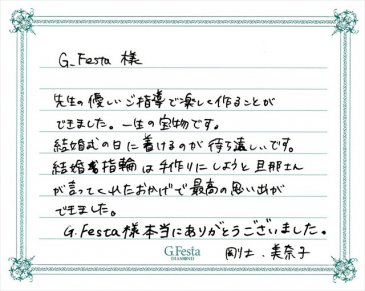 G_Festa 様
先生の優しいご指導で楽しく作ることが
できました。一生の宝物です。
結婚式の日に着けるのが待ち遠しいです。
結婚指輪は手作りにしようと旦那さん
が言ってくれたおかげで最高の思い出が
できました。
G.Festa様本当にありがとうございました。
G.Festa
DIAMOND
剛士・美奈子